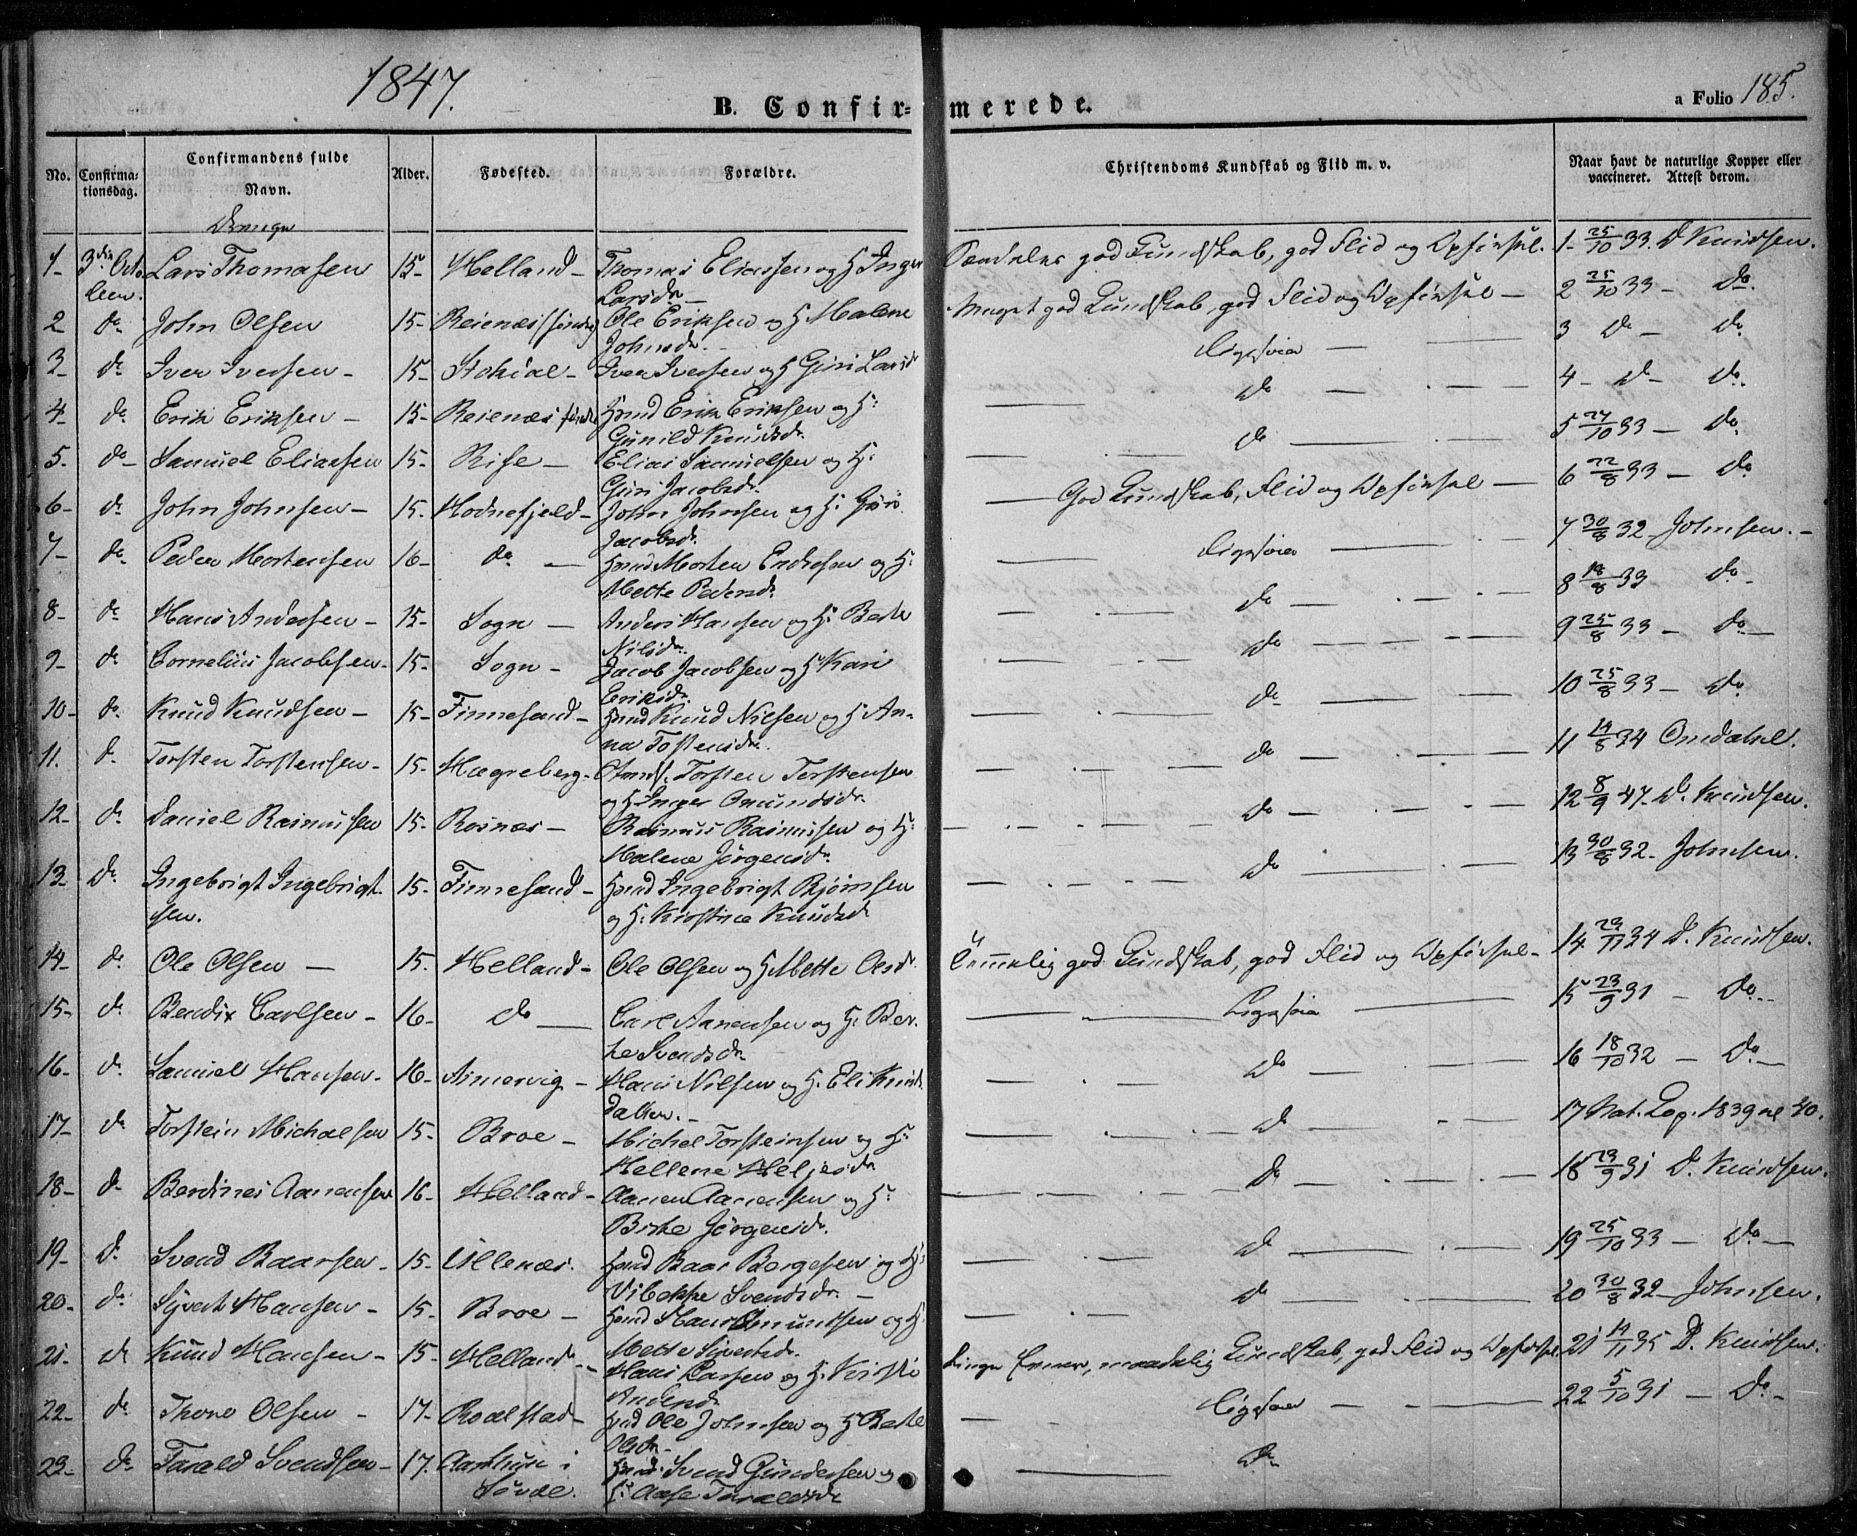 1847.
B. Confirmerede.
a Folio 185.
No. Confirmationsdag. Confirmandens fulde Navn. Alder. Fødested. Forældre. Christendoms Kundskab og Flid m. v. Naar havt de naturlige Kopper eller vaccineret. Attest derom.
Drenge
1- 3die Octo Lars Thomasen 15- Helland- Thomas Eliassen og H Inger god Kundskab, god Flid og Opførsel. 1- 25/10 33. D Knudsen.
Larsdr. Meget god Kundskab, god Flid og Opførsel - 2 25/10 33- do.
2 do John Olsen 15- Reienæs Ole Eriksen og H Malene
Johnsdr. Ligesaa 3 do - do
3- do Iver Iversen- 15- Iver Iversen og H Guri Larsd
do 4- do- do.
4- do Erik Eriksen- 15- Reienæs Hmd Erik Eriksen og H:
Gunild Knudsdr. do 5 24/10 33- do.
5. do- Samuel Eliassen 15- Rise- Elias Samuelsen og H:
Guri Jacobsdr. God Kundskab, Flid og Opførsel - 6 22/8 33- do
6- do John Johnsen- 15- Hodnefjeld- John Johnsen og H. Guri
Jacobsdr. Ligesaa 7 30/8 32- Johnsen.-
7- do Peder Mortensen 16- do- Hmd Morten Endresen og H:
Mette Pedersdr. do 8 18/8 33 do-
8- do Hans Andersen- 15- Sogn- Anders Hansen og H: Berte
Nilsdr. do 9 25/8 33- do-
9- do Cornelius Jacobsen- 15- Sogn- Jacob Jacobsen og H Kari
Eriksdr. do 10 25/8 33- do
10- do. Knud Knudsen- 15- Finnesand- Hmd Knud Nilsen og H An-
na Tostensdr. do 11 14/8 34 Omdahl.
11. do Torsten Torstensen- 15- Hægreberg- Torsten Torstensen
og H Inger Omundsdr. do- 12 8/9 47- D. Knudsen.
12- do. Daniel Rasmussen 15- Rosnæs- Rasmus Rasmussen og H:
Malene Jørgensdr. do 13 30/8 32- Johnsen.
13- do. Ingebrigt Ingebrigt- 15- Finnesand- Hmd Ingebrigt Bjørnsen
sen. og H: Kirstine Knudsd
14- do Ole Olsen- 15. Helland- Ole Olsen og H. Mette Olsd Temmelig god Kundskab, god Flid og Opførsel- 14 23/11 34 D. Knudsen.
15- do Bendix Carlsen- 16- do- Carl Aanensen og H: Ber- Ligesaa 15 23/9 31- do.-
te Svendsdr.
16- do. Samuel Hansen- 16- Asmervig- Hans Nilsen og H. Eli Knuds do 16 18/10 32- do-
datter.-
17- do Torstein Michaelsen 15- Broe- Michel Torsteinsen og H: do 17 Nat. Kop. 1839 No 40.
Hellene
18- do Berdines Aanensen 16- Helland- Aanen Aanensen og H: do 18 23/9 31 D. Knudsen.
Birte Jørgensdr.
19- do Svend Baarsen- 15- Ullenæs. Hmd Baar Borgesen og H: do 19 25/10 33- do-
Vibekke Svendsdr.-
20- do Syvert Hansen- 15- Broe- Hmd Hans Omundsen og H: do 20 30/8 32- Johnsen.
Mette Sivertsdr.
21- do Knud Hansen- 15- Helland- Hans Larsen og H. Kirsti maadelig Kundskab, god Flid og Opførsel 21 14/11 35 D. Knudsen.
Andersd
22- do Thore Olsen- 17- Roalstad- Hmd Ole Johnsen og H Berte Ligesaa 22 5/10 31- do-
Olsdr.
23- do Tarald Svendsen- 17. i Hmd. Svend Gundersen og do
H: Aase Taraldsdr